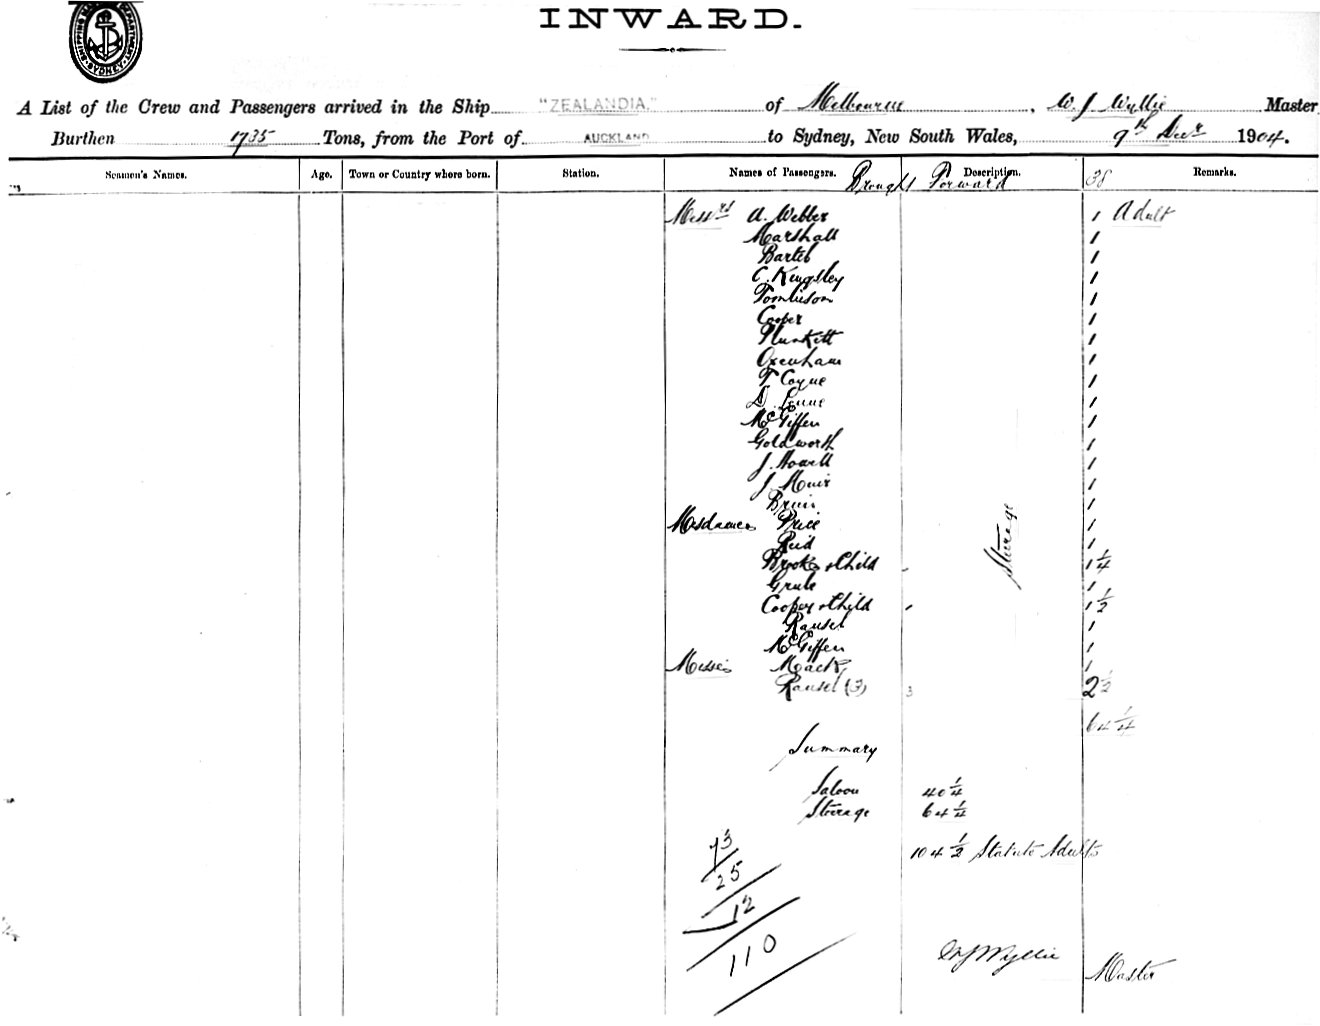 SHIPPING MASTER'S DEPARTMENT SYDNEY
INWARD.
A List of the Crew and Passengers arrived in the Ship "ZEALANDIA," of Melbourne, W. J. Wyllie Master,
Burthen 1735 Tons, from the Port of AUCKLAND to Sydney, New South Wales, 9th Decr 1904.
Seamen's Names. Age. Town or Country where born. Station. Names of Passengers. Description. Remarks.
Brought Forward 38
Messrs A. Webber 1 Adult
Marshall 1
Bartel 1
C. Kingsley 1
Tomlinson 1
Cooper 1
Plunkett 1
Oxenham 1
T Coyne 1
D. 1
McGiffen 1
Goldworth 1
J. Howell 1
J Muir 1
1
Mesdames Price 1
Reid 1
Brooks & Child 1 1/4
Grube 1
Cooper & Child 1 1/2
Rausel 1
McGiffen 1
Misses Mack 1
Rausel (3) 3 2 1/2
Steerage
64 1/4
Summary
Saloon 40 1/4
Steerage 64 1/4
104 1/2 Statute Adults
73
25
12
110
W J Wyllie Master